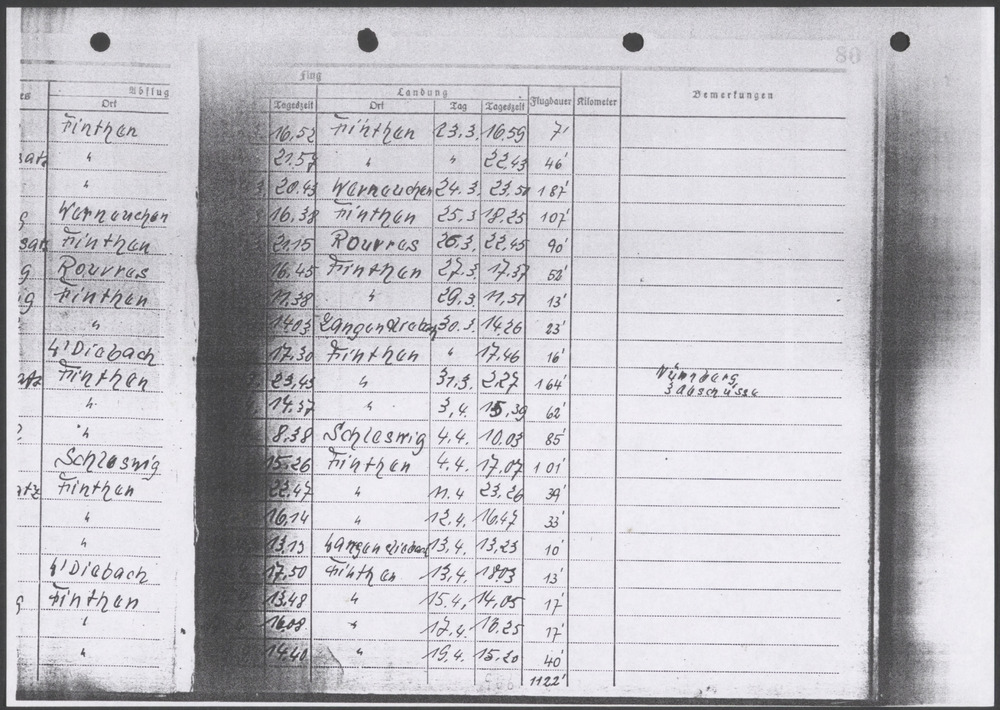 80
Flug
Abflug Landung Bemerkungen
Ort Tageszeit Ort Tag Tageszeit Flugdauer Kilometer
Finthen 16.52 Finthen 23.3. 16.59 7'
satz " 21.57 " " 22.43 46'
" 20.43 Werneuchen 24.3. 187'
Werneuchen 16.38 Finthen 25.3 18.25 107'
satz Finthen 21.15 Rouvres 26.3. 22.45 90'
g Rouvres 16.45 Finthen 27.3 17.37 52'
ig Finthen 11.38 " 29.3. 11.51 13'
" 1403 Langendiebach 30.3. 14.26 23'
L'Diebach 17.30 Finthen " 17.46 16'
atz Finthen 23.43 " 31.3. 2.27 164' Nürnberg
3 Abschüsse
" 14.37 " 3.4. 15.39 62'
" 8.38 Schleswig 4.4. 10.03 85'
Schleswig 15.26 Finthen 4.4. 17.07 101'
atz Finthen 22.47 " 11.4 23.26 39'
" 16.14 " 12.4. 16.47 33'
" 13.13 Langendiebach 13.4. 13.23 10'
L'Diebach 17.50 Finthen 13.4. 1803 13'
g Finthen 13.48 " 15.4. 14.05 17'
" 16.08 " 17.4. 16.25 17'
" 14.40 " 19.4. 15.20 40'
1122'